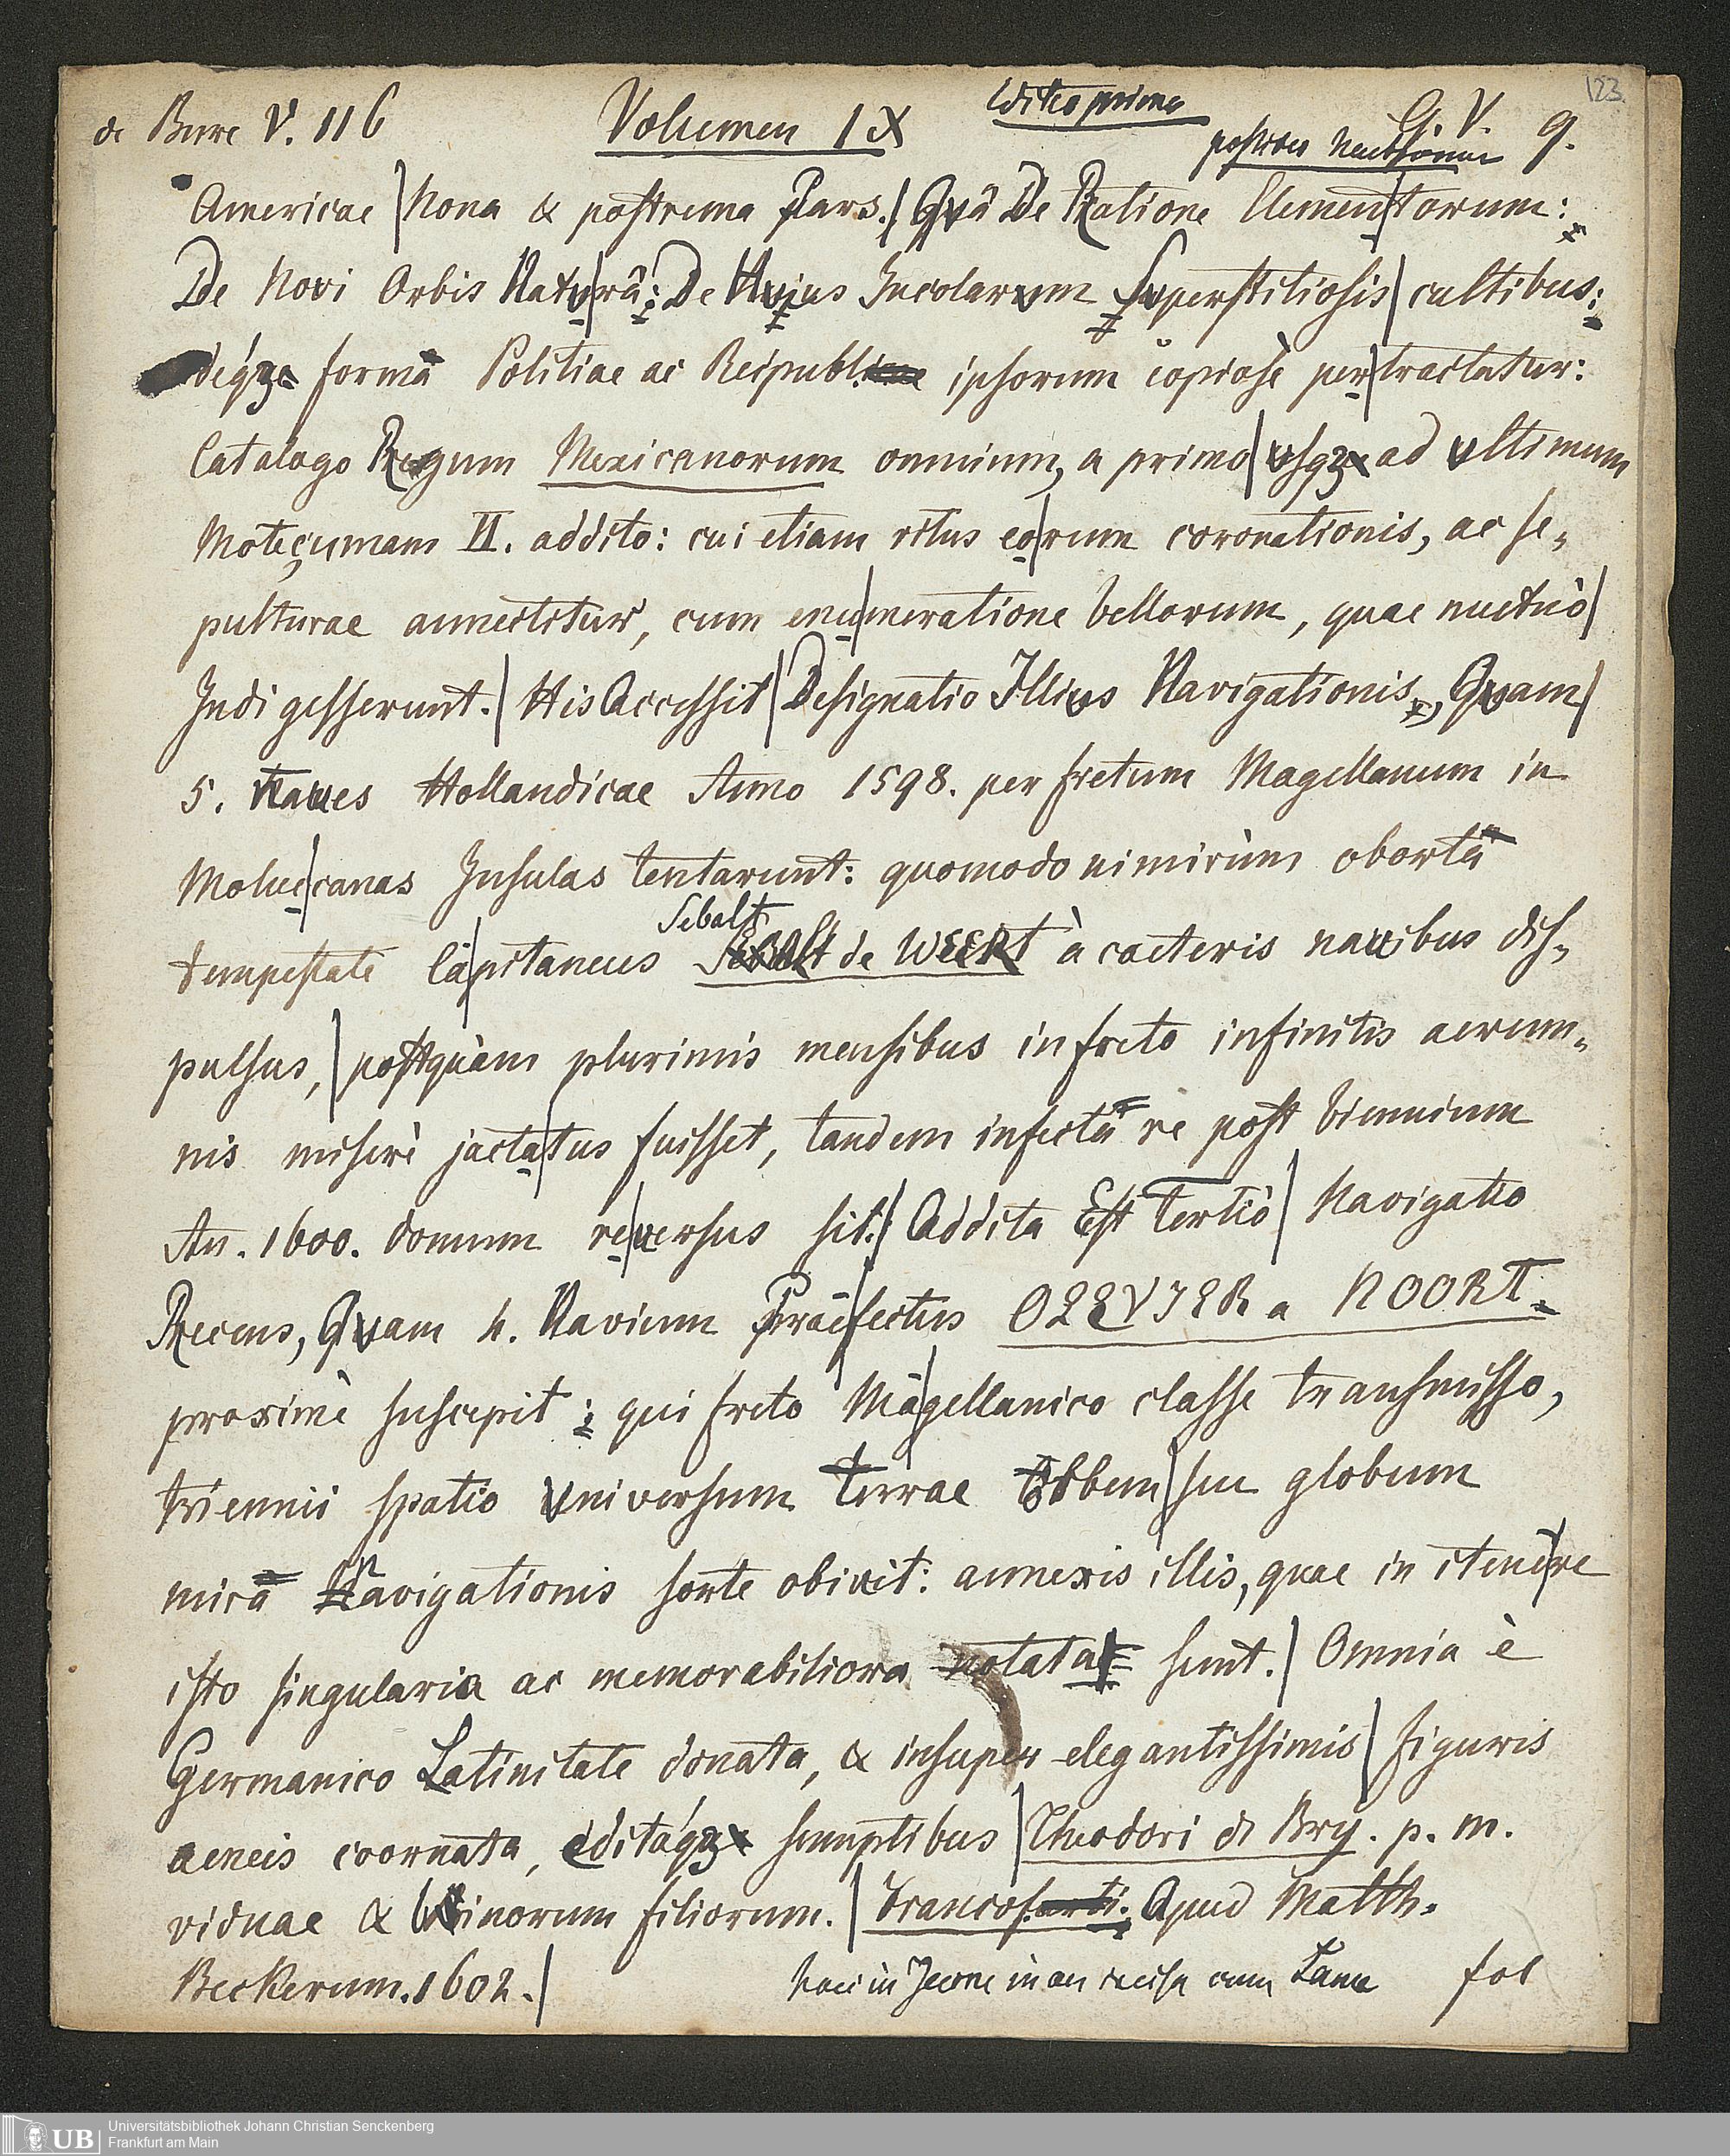 123
de Bure V. 116 Volumen IX Editio prima G. V. 9.
Americae | Nona & postrema Pars. | Qvâ De Ratione Elemen|torum:
De Novi Orbis Natv|râ: De Hvius Incolarvm svperstitiosis | cultibus:
deq́z formâ Politiae ac Reipubl. ipsorum copiosè per|tractatur:
Catalogo Regum Mexicanorum omnium, a primo | vsqz ad vltimum
Moteçumam II. addito: cui etiam ritus eo|rum coronationis, ac se-
pulturae annectitur, cum enu|meratione bellorum, quae mutuò |
Indi gesserunt. | His Accessit | Designatio Illivs Navigationis, Qvam |
5. naues Hollandicae Anno 1598. per fretum Magellanum in
Moluc|canas Insulas tentarunt: quomodo nimirùm obortâ
tempestate Ca|pitaneus Sebalt de WEERT à caeteris nauibus dis-
pulsus, | postquàm plurimis mensibus in freto infinitis aerum-
nis miserè jacta|tus fuisset, tandem infectâ re post biennium
An. 1600. domum re|uersus sit. | Addita Est Tertiò | Navigatio
Recens, Qvam 4. Navium Prae|fectus OLEVIER a NOORT.
proximè suscepit: qui freto Ma|gellanico classe transmisso,
triennii spatio vniversum terrae Orbem | seu globum
mirâ navigationis sorte obiuit: annexis illis, quae in itene|re
isto singularia ac memorabiliora notata sunt. | Omnia è
Germanico Latinitate donata, & insuper elegantissimis | figuris
aeneis coornata, editaq́z sumptibus | Theodori de Bry. p. m.
viduae & binorum filiorum. | Francof. Apud Matth.
Beckerum. 1602. | fol